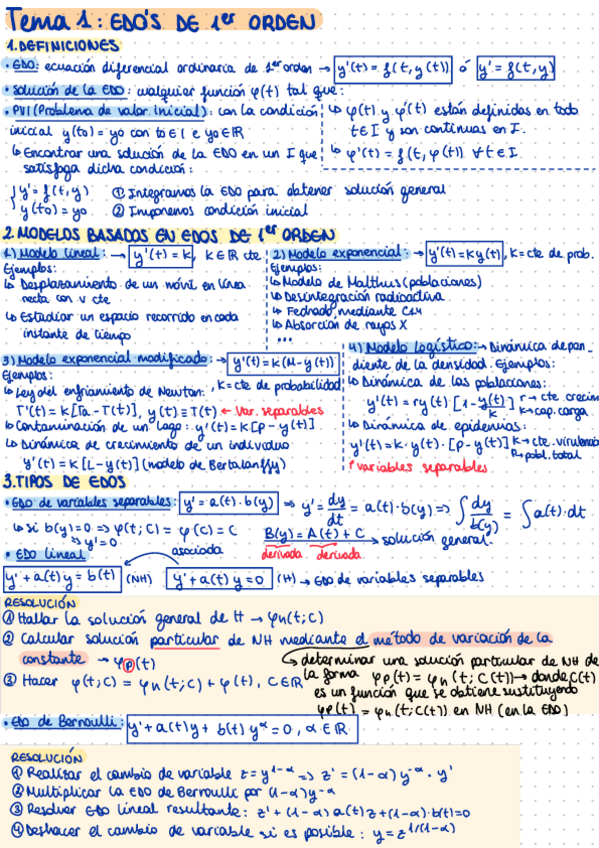 Tema 1: EDO'S DE 1er ORDEN
1. DEFINICIONES
• EDO: ecuación diferencial ordinaria de 1er orden → y'(t) = f(t, y(t)) ó y' = f(t,y)
• Solución de la EDO: cualquier función φ(t) tal que:
↳ φ(t) y φ'(t) están definidas en todo
t∈I y son continuas en I.
↳ φ'(t) = f(t, φ(t)) ∀t∈I.
• PVI (Problema de valor Inicial): con la condición
inicial y(t0) = y0 con t0∈I e y0∈ℝ
↳ Encontrar una solución de la EDO en un I que
satisfaga dicha condición:
{ y' = f(t,y)
y(t0) = y0
① Integramos la EDO para obtener solución general
② Imponemos condición inicial
2. MODELOS BASADOS EN EDOS DE 1er ORDEN
1) Modelo lineal: → y'(t) = k, k∈ℝ cte.
Ejemplos:
↳ Desplazamiento de un móvil en línea
recta con v cte
↳ Estudiar un espacio recorrido en cada
instante de tiempo
2) Modelo exponencial: → y'(t) = ky(t), k = cte de prob.
Ejemplos:
↳ Modelo de Malthus (poblaciones)
↳ Desintegración radioactiva
↳ Fechado mediante C14
↳ Absorción de rayos X
...
3) Modelo exponencial modificado: → y'(t) = k(M-y(t))
Ejemplos: k = cte de probabilidad
↳ Ley del enfriamiento de Newton:
T'(t) = k[Ta - T(t)], y(t) = T(t) ← Var. separables
↳ Contaminación de un lago: y'(t) = k[P - y(t)]
↳ Dinámica de crecimiento de un individuo:
y'(t) = k[L - y(t)] (modelo de Bertalanffy)
4) Modelo logístico: → Dinámica depen-
diente de la densidad. Ejemplos:
↳ Dinámica de las poblaciones:
y'(t) = ry(t)·[1 - y(t)/k] r → cte. crecim
k → cap. carga
↳ Dinámica de epidemias:
y'(t) = k·y(t)·[P - y(t)] k → cte. virulencia
P → pobl. total
↑ variables separables
3. TIPOS DE EDOS
• EDO de variables separables: y' = a(t)·b(y) ⇒ y' = dy/dt = a(t)·b(y) ⇒ ∫ dy/b(y) = ∫ a(t)·dt
↳ si b(y) = 0 ⇒ φ(t;C) = φ(C) = C
⇒ y' = 0
B(y) = A(t) + C → solución general
derivada derivada
• EDO lineal
asociada
y' + a(t)y = b(t) (NH) y' + a(t)y = 0 (H) → EDO de variables separables
RESOLUCIÓN
① Hallar la solución general de H → φh(t;C)
② Calcular solución particular de NH mediante el método de variación de la
constante → φp(t)
↳ determinar una solución particular de NH de
la forma φp(t) = φh(t; C(t)) → donde C(t)
es un función que se obtiene sustituyendo
φp(t) = φh(t;C(t)) en NH (en la EDO)
③ Hacer φ(t;C) = φh(t;C) + φ(t), C∈ℝ
• EDO de Bernoulli: y' + a(t)y + b(t)y^α = 0, α∈ℝ
RESOLUCIÓN
① Realizar el cambio de variable z = y^1-α ⇒ z' = (1-α)y^-α · y'
② Multiplicar la EDO de Bernoulli por (1-α)y^-α
③ Resolver EDO lineal resultante: z' + (1-α)a(t)z + (1-α)·b(t) = 0
④ Deshacer el cambio de variable si es posible: y = z^1/(1-α)